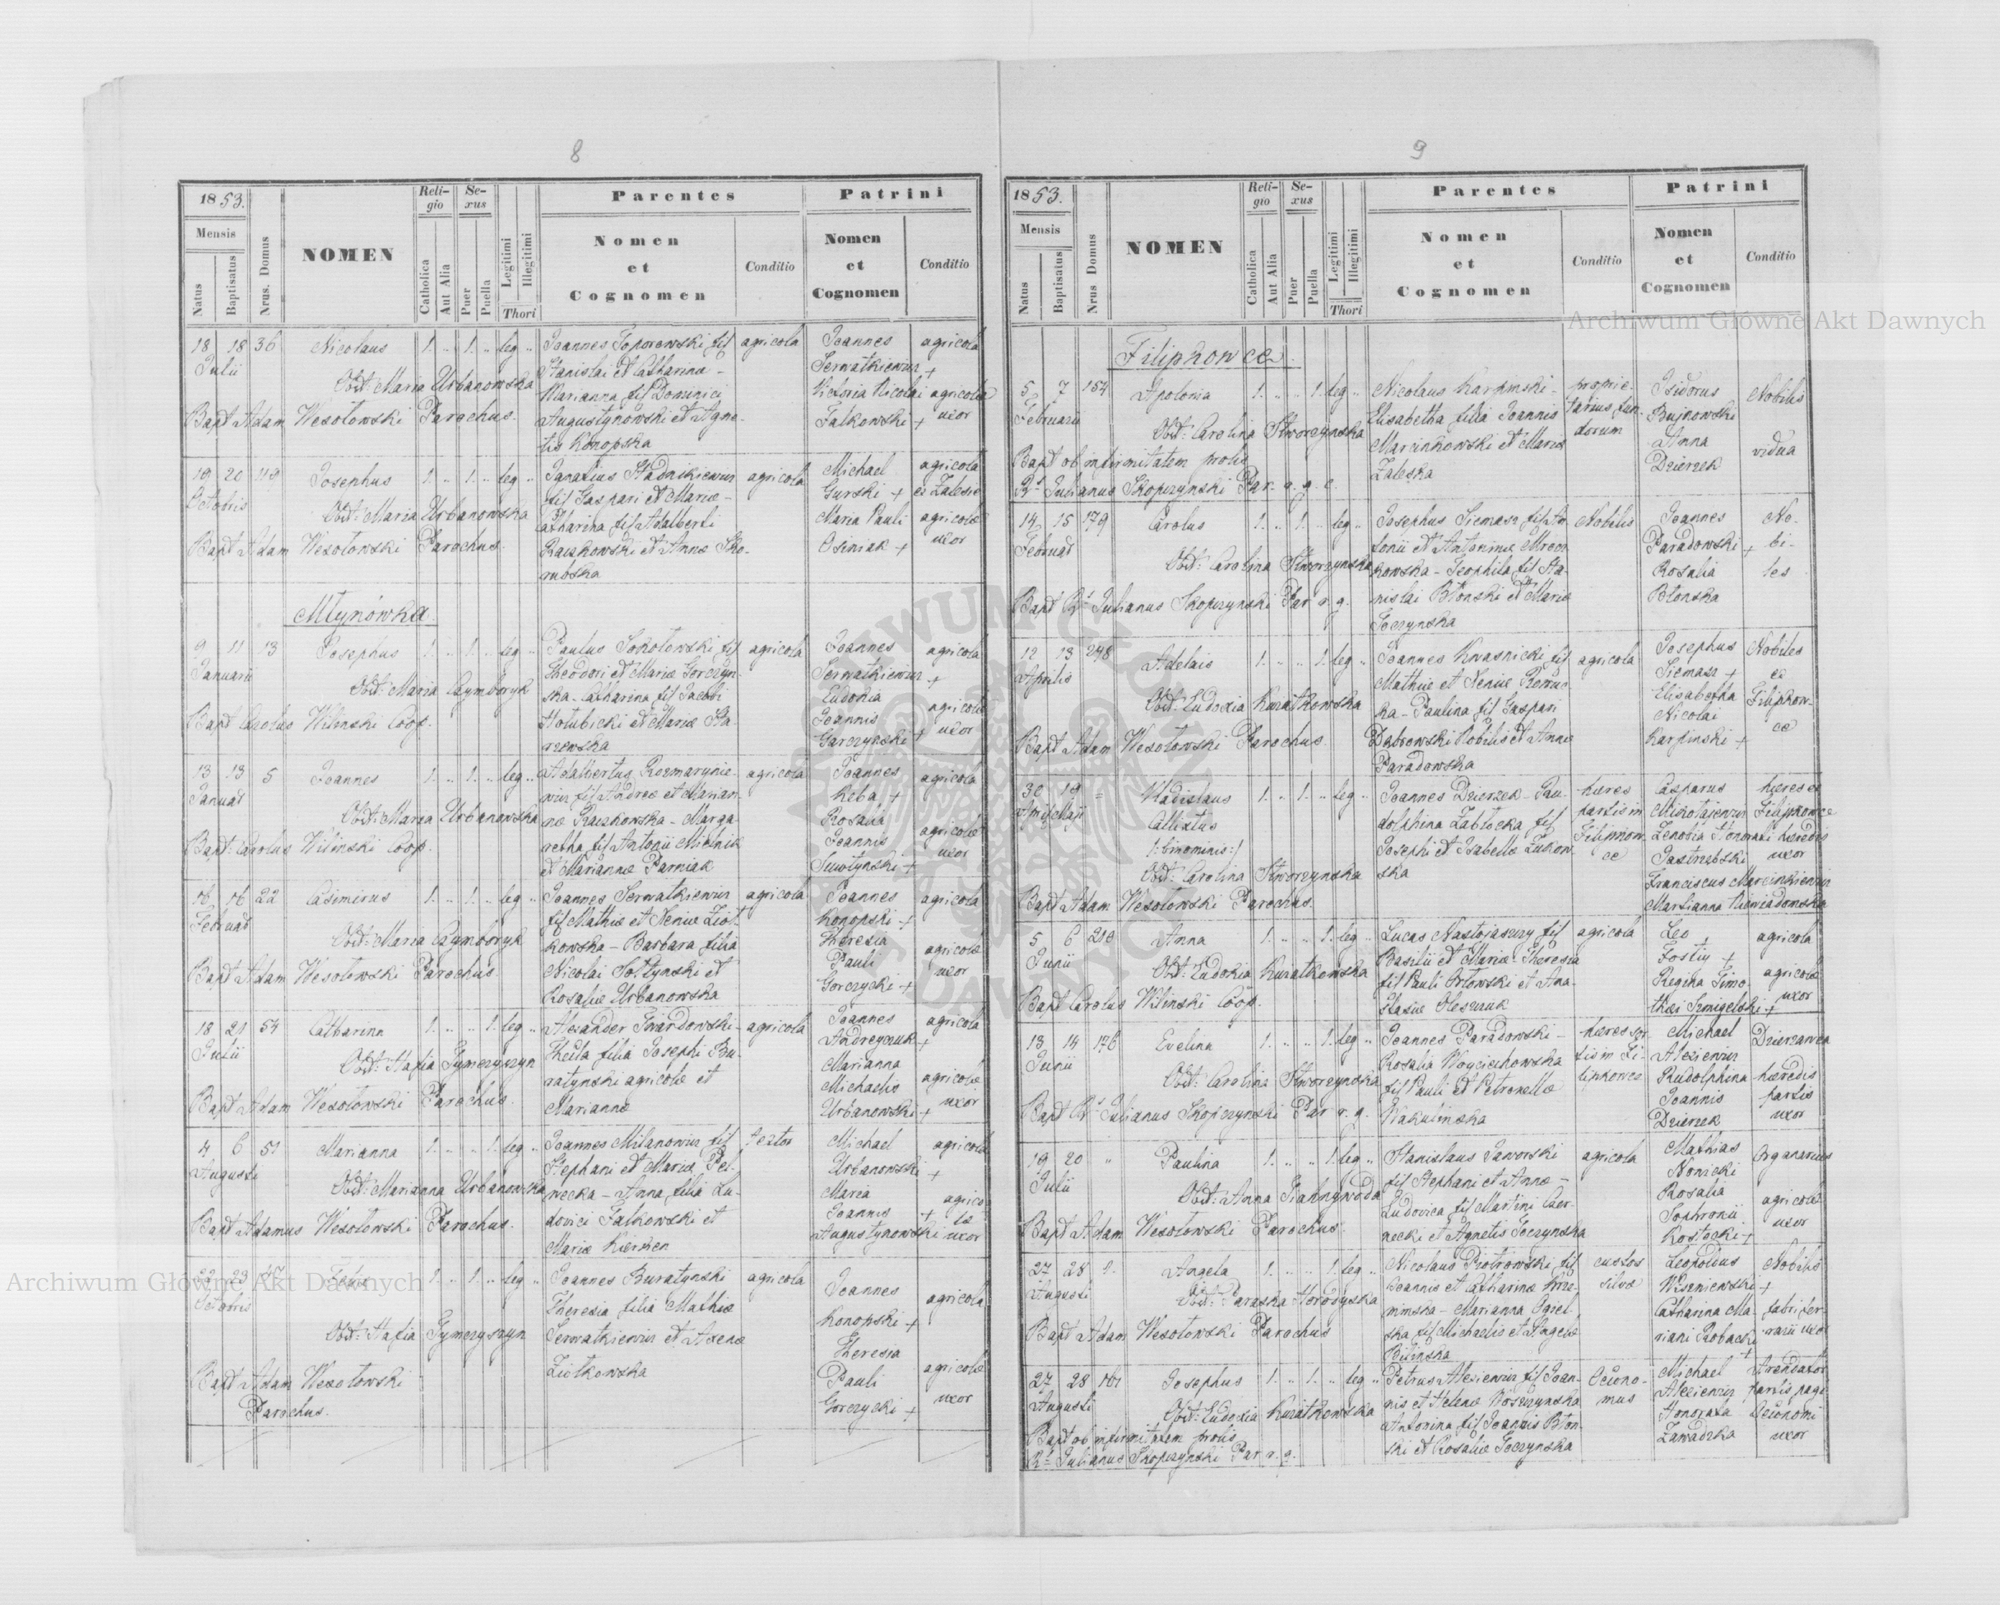 8
1853.
Mensis
Natus
Baptisatus
Nrus. Domus
NOMEN
Religio
Catholica
Aut Alia
Sexus
Puer
Puella
Legitimi
Illegitimi
Thori
Parentes
Nomen
et
Cognomen
Conditio
Patrini
Nomen
et
Cognomen
Conditio
18 18 36 Nicolaus 1. .. 1. .. leg ..
Julii
Obst: Maria Urbanowska
Bapt Adam Wesołowski Parochus.
Joannes Toporowski fil
Stanislai et Catharinæ -
Marianna fil Dominici
Augustynowski et Agne-
tis Konopska
agricola
Joannes
Serwatkiewicz +
Victoria Nicolai
Falkowski +
agricola
agricolæ
uxor
19 20 119 Josephus 1. .. 1. .. leg ..
Octobris
Obst: Maria Urbanowska
Bapt Adam Wesołowski Parochus.
Ignatius Stadnikiewicz
fil Gaspari et Mariæ -
Catharina fil Adalberti
Raczkowski et Annæ Sko-
rubska
agricola
Michael
Gurski +
Maria Pauli
Osiniak +
agricola
ex Zalesie
agricolæ
uxor
Młynówka
9 11 13 Josephus 1. .. 1. .. leg ..
Januarii
Obst: Maria Cymboryk
Bapt Carolus Wilinski Coop.
Paulus Sokołowski fil
Theodori et Mariæ Gorczyn-
ska - Catharina fil Jacobi
Hołubicki et Mariæ
agricola
Joannes
Serwatkiewicz +
Eudokia
Joannis
Garczynski +
agricola
agricolæ
uxor
13 13 5 Joannes 1. .. 1. .. leg ..
Januar
Obst: Maria Urbanowska
Bapt: Carolus Wilinski Coop.
Adalbertus Rozmarynie-
wicz fil Andreæ et Marian-
næ Raczkowska - Marga-
retha fil Antonii Mielnik
et Mariannæ Parniak
agricola
Joannes
Keba +
Rosalia
Joannis
agricola
agricolæ
uxor
16 16 22 Casimirus 1. .. 1. .. leg ..
Februar
Obst: Maria Cymboryk
Bapt Adam Wesołowski Parochus.
Joannes Serwatkiewicz
fil Mathiæ et Xeniæ Ziot-
kowska - Barbara filia
Nicolai Sołtynski et
Rosaliæ Urbanowska
agricola
Joannes
Konopski +
Theresia
Pauli
Gorczycki +
agricola
agricolæ
uxor
18 21 54 Catharina 1. .. .. 1. leg ..
Julii
Obst: Hafia Tymczyszyn
Bapt Adam Wesołowski Parochus.
Alexander Twardowski -
Thecla filia Josephi Bu-
ratynski agricolæ et
Mariannæ
agricola
Joannes
Andreyczuk +
Marianna
Michaelis
Urbanowski +
agricola
agricolæ
uxor
4 6 51 Marianna 1. .. .. 1. leg ..
Augusti
Obst: Marianna Urbanowska
Bapt Adamus Wesołowski Parochus.
Joannes Milanowicz fil
Stephani et Mariæ Pel-
necka - Anna filia Lu-
dovici Falkowski et
Mariæ Kiernen
textor
Michael
Urbanowski +
Maria
Joannis +
Augustynowski
agricola
agrico-
læ
uxor
22 23 47 Felix 1. .. 1. .. leg ..
Octobris
Obst: Hafia Tymczyszyn
Bapt Adam Wesołowski
Parochus.
Joannes Buratynski
Theresia filia Mathiæ
Serwatkiewicz et Axenæ
Ziotkowska
agricola
Joannes
Konopski +
Theresia
Pauli
Gorczycki +
agricola
agricolæ
uxor
9
1853.
Mensis
Natus
Baptisatus
Nrus Domus
NOMEN
Religio
Catholica
Aut Alia
Sexus
Puer
Puella
Legitimi
Illegitimi
Thori
Parentes
Nomen
et
Cognomen
Conditio
Patrini
Nomen
et
Cognomen
Conditio
Filipkowce
5 7 154 Apolonia 1. .. .. 1. leg ..
Februarii
Obst: Carolina Stworzynska
Bapt ob infirmitatem prolis
Rs Julianus Skopczynski Par. r. g. c.
Nicolaus Karpinski -
Elisabetha filia Joannis
Marcinkowski et Mariæ
Zaleska
proprie-
tarius fun-
dorum
Isidorus
Bujnowski
Anna
Dzierzek
Nobilis
vidua
14 15 179 Carolus 1. .. 1. .. leg ..
Februar
Obst: Carolina Stworzynska
Bapt Rs Julianus Skopczynski Par r. g.
Josephus Siemasz fil An-
tonii et Antoninæ Mroz-
kowska - Teophila fil Sta-
nislai Błonski et Mariæ
Toczynska
Nobilis
Joannes
Paradowski +
Rosalia
Błonska
No-
bi-
les
12 13 248 Adelais 1. .. .. 1. leg ..
Aprilis
Obst: Eudoxia Kuratkowska
Bapt Adam Wesołowski Parochus.
Joannes Kwasnicki fil
Mathiæ et Xeniæ
ka - Paulina fil Gaspari
Dąbrowski Nobilis et Annæ
Paradowska
agricola
Josephus
Siemasz +
Elisabetha
Nicolai
Karpinski +
Nobiles
ex
Filipkow-
ce
30 19 = Vladislaus 1. .. 1. .. leg ..
April Maji
Calixtus
/:binominis:/
Obst: Carolina Stworzynska
Bapt Adam Wesołowski Parochus.
Joannes Dzierzek - Pau-
dolphina Zabłocka fil
Josephi et Isabellæ Zukow-
ska
hæres
partis in
Filipkow-
ce
Casparus
Mikołajewicz
Zenobia Honorati
Jastrzebski
Franciscus Marcinkiewicz
Marianna Niewiadomska
hæres ex
Filipkowce
hæredis
uxor
5 6 210 Anna 1. .. .. 1. leg ..
Junii
Obst: Eudokia Kuratkowska
Bapt Carolus Wilinski Coop.
Lucas Nastojaszczy fil
Basilii et Mariæ - Theresia
fil Pauli Orłowski et Ana-
stasiæ
agricola
Leo
Fostiy +
Regina Timo-
thei Smigelski +
agricola
agricolæ
uxor
13 14 176 Evelina 1. .. .. 1. leg ..
Junii
Obst: Carolina Stworzynska
Bapt Rs Julianus Skopczynski Par r. g.
Joannes Paradowski -
Rosalia Woyciechowska
fil Pauli et Petronellæ
Wakulinska
hæres par-
tis in Fi-
lipkowce
Michael
Alexiewicz
Rudolphina
Joannis
Dzierzek
Dzierzawca
hæredis
partis
uxor
19 20 " Paulina 1. .. .. 1. leg ..
Julii
Obst: Anna
Bapt Adam Wesołowski Parochus.
Stanislaus Jaworski
fil Stephani et Annæ -
Ludovica fil Martini Czer-
necki et Agnetis Toczynska
agricola
Mathias
Nowicki
Rosalia
Sophronii
Kostecki +
Organarius
agricolæ
uxor
27 28 Angela 1. .. .. 1. leg ..
Augusti
Obst: Paraska Horodyska
Bapt Adam Wesołowski Parochus
Nicolaus Piotrowski fil
Joannis et Catharinæ Krze-
minska - Marianna Ogiel-
ska fil Michaelis et Angelæ
Bilinska
custos
silvæ
Leopoldus
Wiszniewski +
Catharina Ma-
riani Robacki +
Nobilis
fabri fer-
rarii uxor
27 28 161 Josephus 1. .. 1. .. leg ..
Augusti
Obst: Eudoxia Kuratkowska
Bapt ob infirmitatem prolis
Rs Julianus Skopczynski Par r. g.
Petrus Alexiewicz fil Joan-
nis et Helenæ Woszczynska
Antonina fil Joannis Błon-
ski et Rosaliæ Toczynska
Oecono-
mus
Michael
Alexiewicz
Honorata
Zawadzka
Arendator
partis pagi
Oeconomi
uxor
Archiwum Główne Akt Dawnych
Archiwum Główne Akt Dawnych
ARCHIWUM GŁÓWNE AKT DAWNYCH